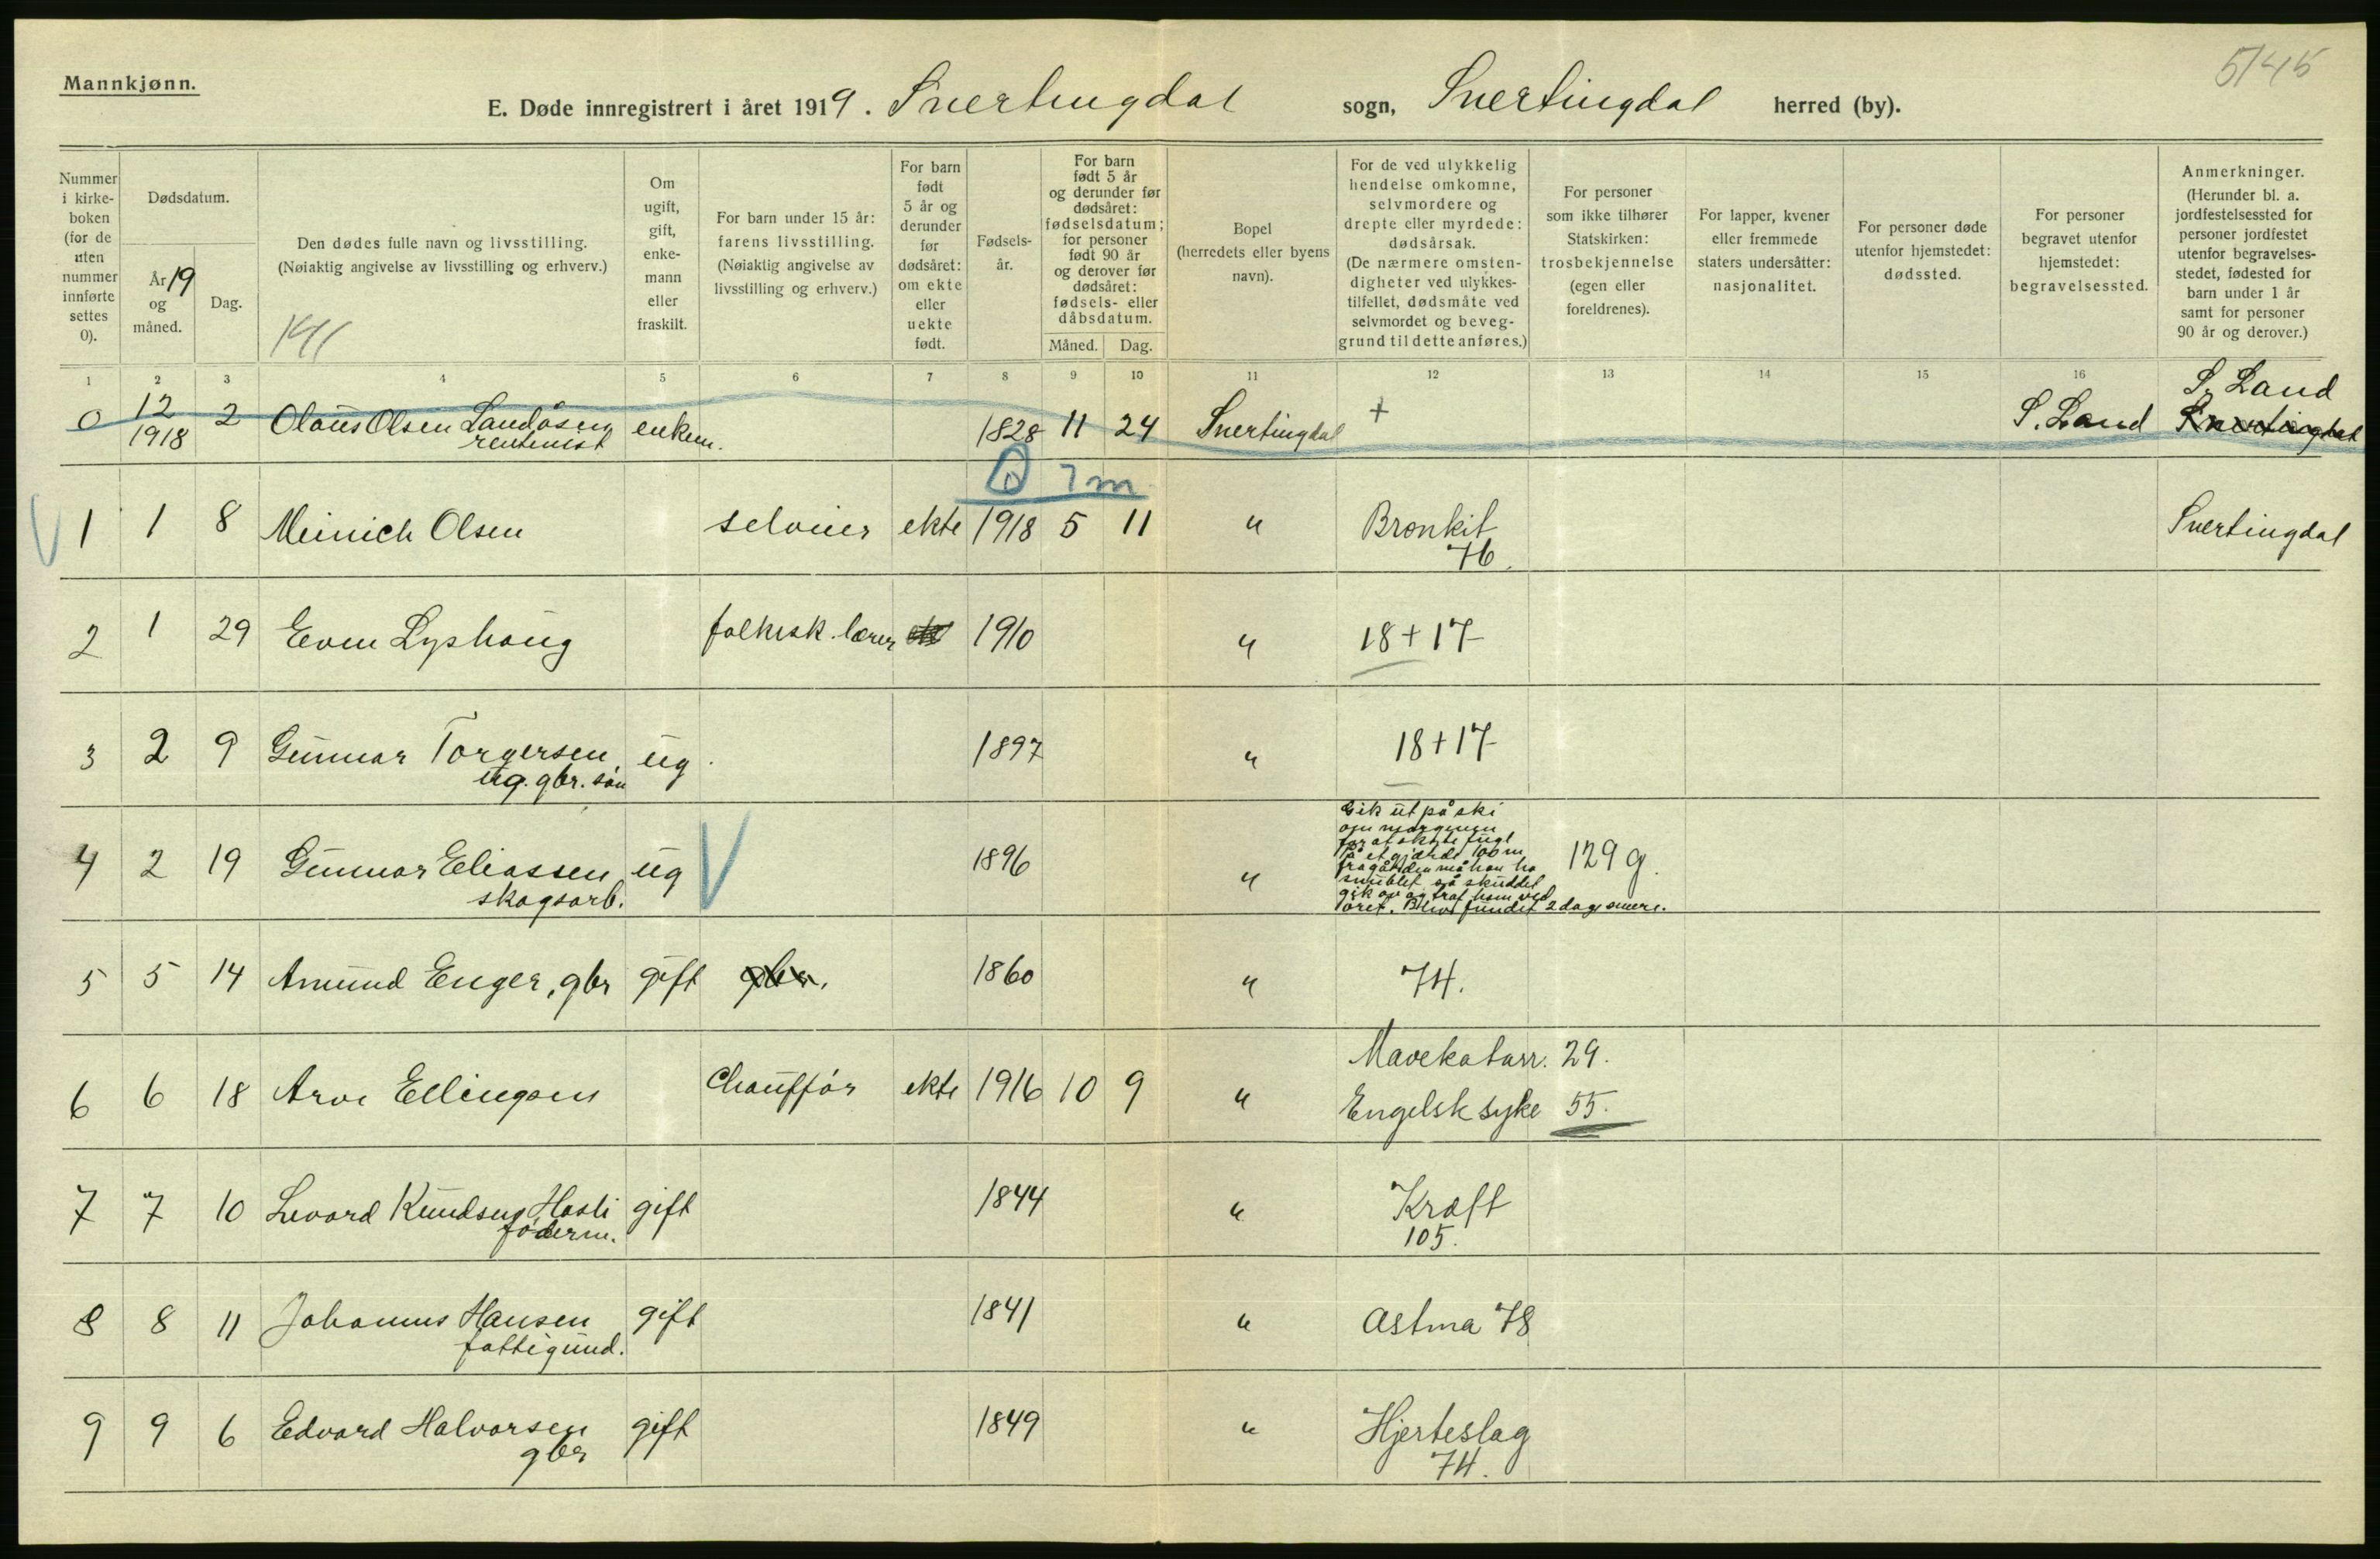 Mannkjønn.
5/45
E. Døde innregistrert i året 1919. Snertingdal sogn, Snertingdal herred (by).
Nummer i kirke-boken (for de uten nummer innførte settes 0).
Dødsdatum.
År 19 og måned.
Dag.
Den dødes fulle navn og livsstilling.
(Nøiaktig angivelse av livsstilling og erhverv.)
Om ugift, gift, enke-mann eller fraskilt.
For barn under 15 år: farens livsstilling. (Nøiaktig angivelse av livsstilling og erhverv.)
For barn født 5 år og derunder før dødsåret: om ekte eller uekte født.
Fødsels-år.
For barn født 5 år og derunder før dødsåret: fødselsdatum; for personer født 90 år og derover før dødsåret: fødsels- eller dåbsdatum.
Måned. Dag.
Bopel (herredets eller byens navn).
For de ved ulykkelig hendelse omkomne, selvmordere og drepte eller myrdede: dødsårsak. (De nærmere omsten-digheter ved ulykkes-tilfellet, dødsmåte ved selvmordet og beveg-grund til dette anføres.)
For personer som ikke tilhører Statskirken: trosbekjennelse (egen eller foreldrenes).
For lapper, kvener eller fremmede staters undersåtter: nasjonalitet.
For personer døde utenfor hjemstedet: dødssted.
For personer begravet utenfor hjemstedet: begravelsessted.
Anmerkninger. (Herunder bl. a. jordfestelsessted for personer jordfestet utenfor begravelses-stedet, fødested for barn under 1 år samt for personer 90 år og derover.)
1 2 3 4 5 6 7 8 9 10 11 12 13 14 15 16
S. Land
0 12 1918 2 Olaus Olsen Landåsen rentenist enkem. 1828 11 24 Snertingdal + S. Land Snertingdal
0 7 m
1 1 8 Meinich Olsen selveier ekte 1918 5 11 " Bronkit 76. Snertingdal
2 1 29 Even Lyshaug folkesk. lærer 1910 " 18 + 17
3 2 9 Gunnar Torgersen, ug. gbr. søn ug. 1897 " 18 + 17
4 2 19 Gunnar Eliassen skogsarb. ug V 1896 "
Gik ut på ski
om morgenen
for at skyte fugl
På et gjærde 100 m
fra gården må han ha
snublet så skuddet
gik av og traf ham ved
øret. Blev fundet 2 dage senere.
129 g.
5 5 14 Amund Enger, gbr gift gbr. 1860 " 74.
6 6 18 Arve Ellingsen Chauffør ekte 1916 10 9 " Mavekatarr. 29.
Engelsk syke 55.
7 7 10 Levord Knudsen Hasli føderm. gift 1844 " Kræft 105.
8 8 11 Johannes Hansen fattigund. gift 1841 " Astma 78
9 9 6 Edvard Halvorsen gbr gift 1849 " Hjerteslag 74.